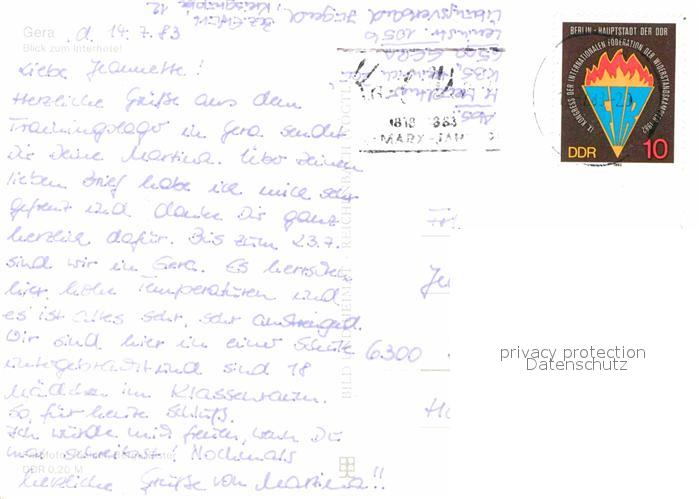 Gera d. 14.7.83
Blick zum Interhotel
Liebe Jeannette!
Herzliche Grüße aus dem
Trainingslager in Gera sendet
Dir Deine Martina. Über Deinen
lieben Brief habe ich mich sehr
gefreut und danke Dir ganz
herzlich dafür. Bis zum 23.7.
sind wir in Gera. Es herrschen
hier hohe Temperaturen und
es ist alles sehr, sehr anstrengend.
Wir sind hier in einer Schule
untergebracht und sind 18
Mädchen im Klassenraum.
So, für heute Schluß.
Ich würde mich freuen, wenn Du
mal schreibst! Nochmals
herzliche Grüße von Martina!!
DDR 0,20 M
BILD UND HEIMAT REICHENBACH
Abs.:
6500 GERA
1818 1883
MARX-JAHR
BERLIN - HAUPTSTADT DER DDR
IX. KONGRESS DER INTERNATIONALEN FÖDERATION DER WIDERSTANDSKÄMPFER 1982
DDR 10
6300
privacy protection
Datenschutz